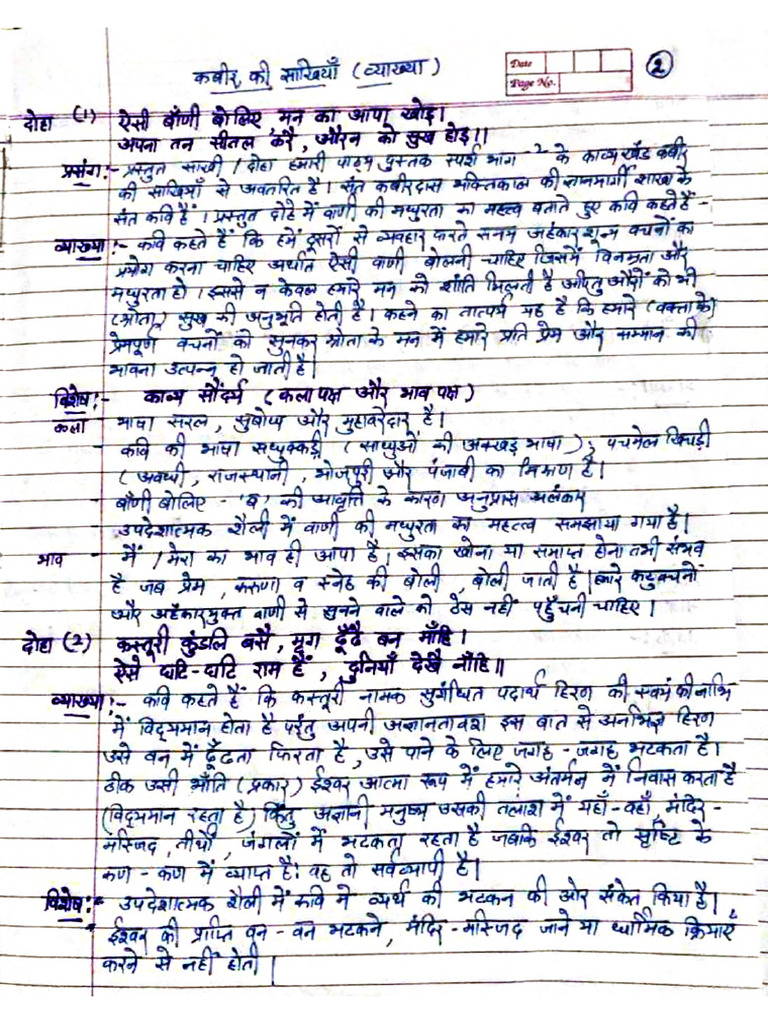 कबीर की साखियाँ (व्याख्या)
Date
Page No.
2
दोहा (1) ऐसी बाँणी बोलिए मन का आपा खोइ।
अपना तन सीतल करै, औरन को सुख होइ।।
प्रसंग:- प्रस्तुत साखी / दोहा हमारी पाठ्य पुस्तक स्पर्श भाग-2 के काव्य खंड कबीर
की साखियाँ से अवतरित है। संत कबीरदास भक्तिकाल की ज्ञानमार्गी शाखा के
संत कवि हैं। प्रस्तुत दोहे में वाणी की मधुरता का महत्त्व बताते हुए कवि कहते हैं -
व्याख्या:- कवि कहते हैं कि हमें दूसरों से व्यवहार करते समय अहंकार शून्य वचनों का
प्रयोग करना चाहिए अर्थात ऐसी वाणी बोलनी चाहिए जिसमें विनम्रता और
मधुरता हो। इससे न केवल हमारे मन को शांति मिलती है अपितु औरों को भी
(श्रोता) सुख की अनुभूति होती है। कहने का तात्पर्य यह है कि हमारे (वक्ता के)
प्रेमपूर्ण वचनों को सुनकर श्रोता के मन में हमारे प्रति प्रेम और सम्मान की
भावना उत्पन्न हो जाती है।
विशेष:- काव्य सौंदर्य (कला पक्ष और भाव पक्ष)
कला भाषा सरल, सुबोध और मुहावरेदार है।
- कवि की भाषा सधुक्कड़ी (साधुओं की अक्खड़ भाषा); पंचमेल खिचड़ी
(अवधी, राजस्थानी, भोजपुरी और पंजाबी का मिश्रण है।
- बाँणी बोलिए - 'ब' की आवृत्ति के कारण अनुप्रास अलंकार
- उपदेशात्मक शैली में वाणी की मधुरता का महत्त्व समझाया गया है।
भाव - मैं / मेरा का भाव ही आपा है। इसका खोना या समाप्त होना तभी संभव
है जब प्रेम, करुणा व स्नेह की बोली, बोली जाती है। हमारे कटुवचनों
और अहंकारयुक्त वाणी से सुनने वाले को ठेस नहीं पहुँचनी चाहिए।
दोहा (2) कस्तूरी कुंडलि बसै, मृग ढूँढै बन माँहि।
ऐसे घटि-घटि राम हैं, दुनियाँ देखै नाँहि॥
व्याख्या:- कवि कहते हैं कि कस्तूरी नामक सुगंधित पदार्थ हिरण की स्वयं की नाभि
में विद्यमान होता है परंतु अपनी अज्ञानतावश इस बात से अनभिज्ञ हिरण
उसे वन में ढूँढता फिरता है, उसे पाने के लिए जगह-जगह भटकता है।
ठीक उसी भाँति (प्रकार) ईश्वर आत्मा रूप में हमारे अंतर्मन में निवास करता है
(विद्यमान रहता है) किंतु अज्ञानी मनुष्य उसकी तलाश में यहाँ-वहाँ मंदिर-
मस्जिद, तीर्थों, जंगलों में भटकता रहता है जबकि ईश्वर तो सृष्टि के
कण-कण में व्याप्त है। वह तो सर्वव्यापी है।
विशेष:- उपदेशात्मक शैली में कवि ने व्यर्थ की भटकन की ओर संकेत किया है।
ईश्वर की प्राप्ति वन-वन भटकने, मंदिर-मस्जिद जाने या धार्मिक क्रियाएँ
करने से नहीं होती।